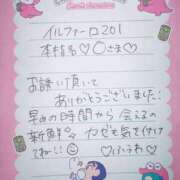 イルファーロ201
本指名♡○さま♡
お誘い頂いて
ありがとうございました!
早めの時間から会える
の新鮮々カゼを気を付け
てねー!!